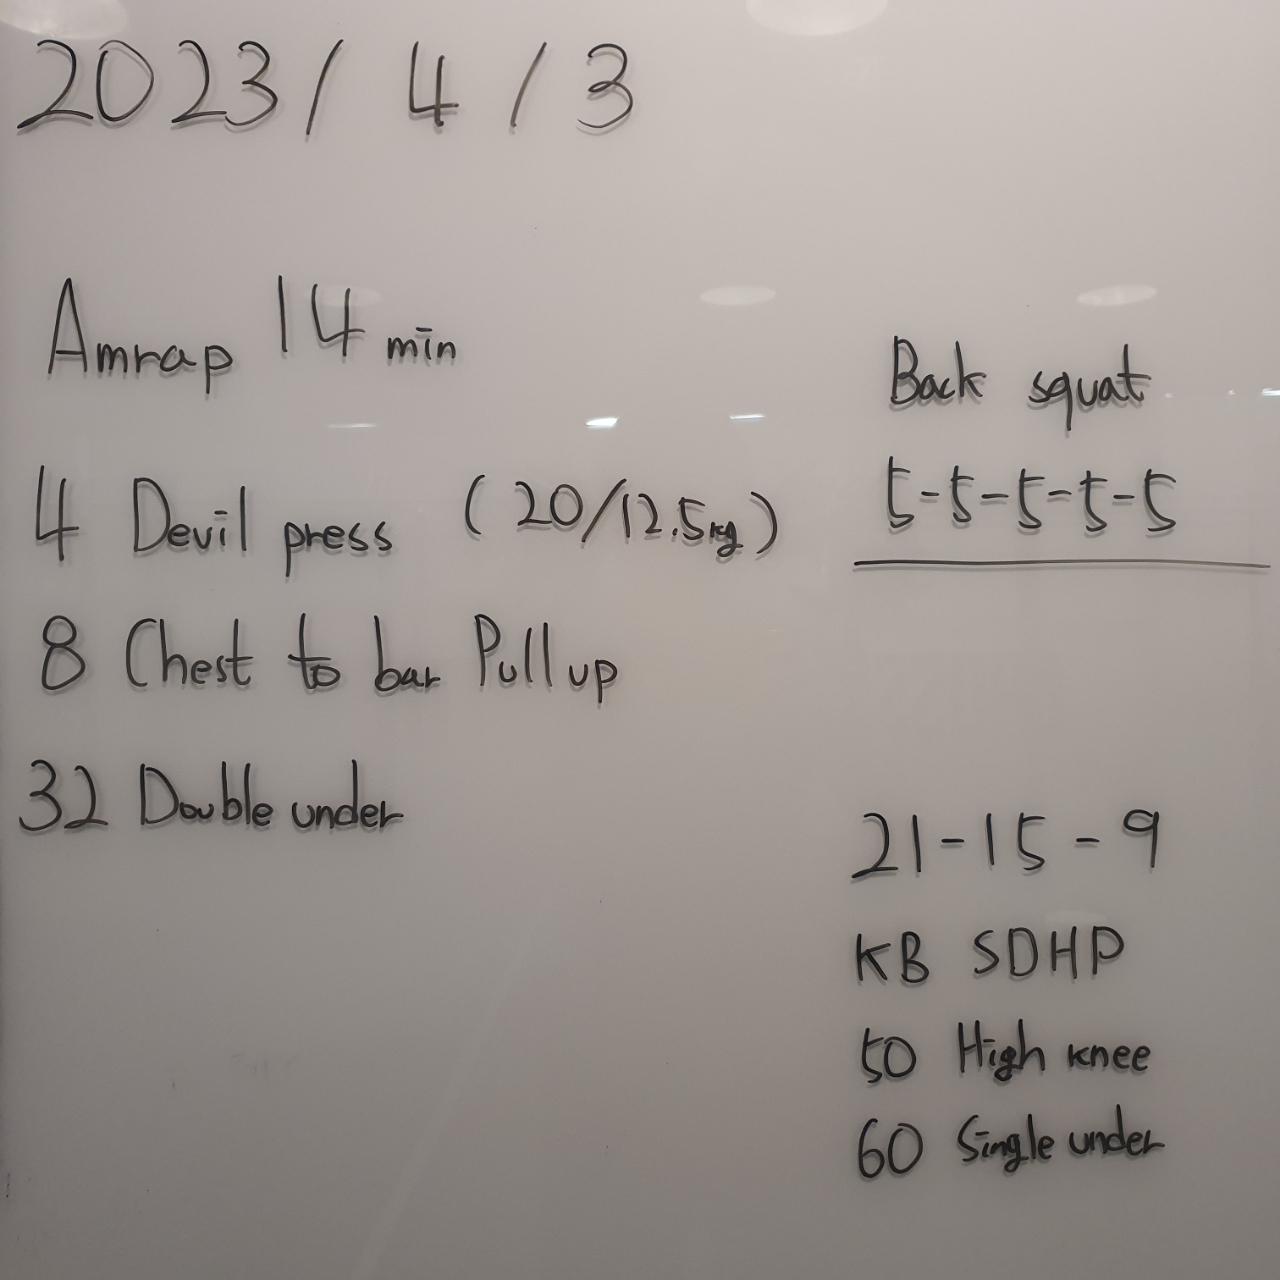 2023/4/3
Amrap 14 min
4 Devil press (20/12.5kg)
8 Chest to bar Pull up
32 Double under
Back squat
5-5-5-5-5
21-15-9
KB SDHP
50 High knee
60 Single under